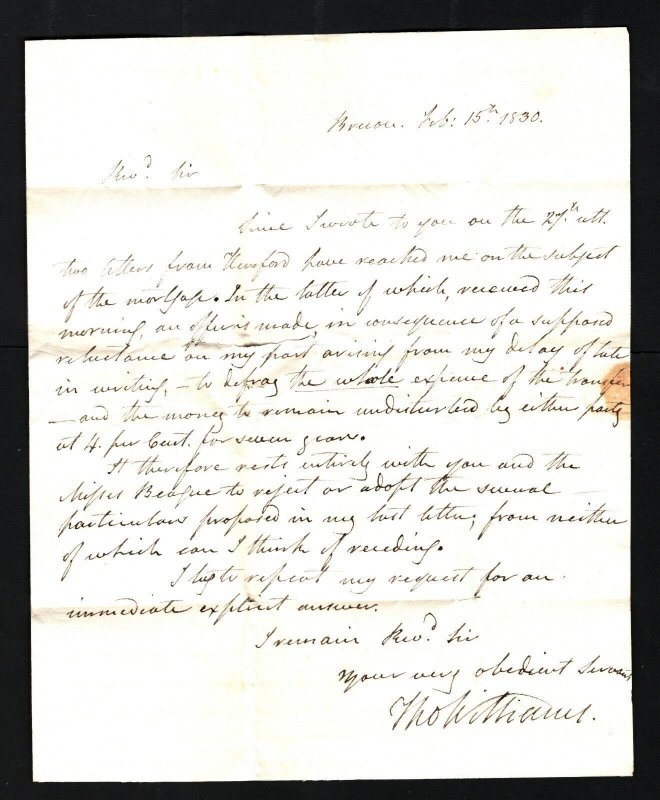 Brecon. Feb: 15th. 1830.
Revd. Sir
Since I wrote to you on the 27th. ult.
two letters from Hereford have reached me on the subject
of the mortgage. In the latter of which, received this
morning, an offer is made, in consequence of a supposed
reluctance on my part arising from my delay of late
in writing, – to defray the whole expence of the transfer
– and the money to remain undisturbed by either party
at 4. per Cent. for seven years.
It therefore rests entirely with you and the
Misses Beague to reject or adopt the several
particulars proposed in my last letter, from neither
of which can I think of receding.
I beg to repeat my request for an
immediate explicit answer.
I remain Revd. Sir
your very obedient Servant
Tho Williams.